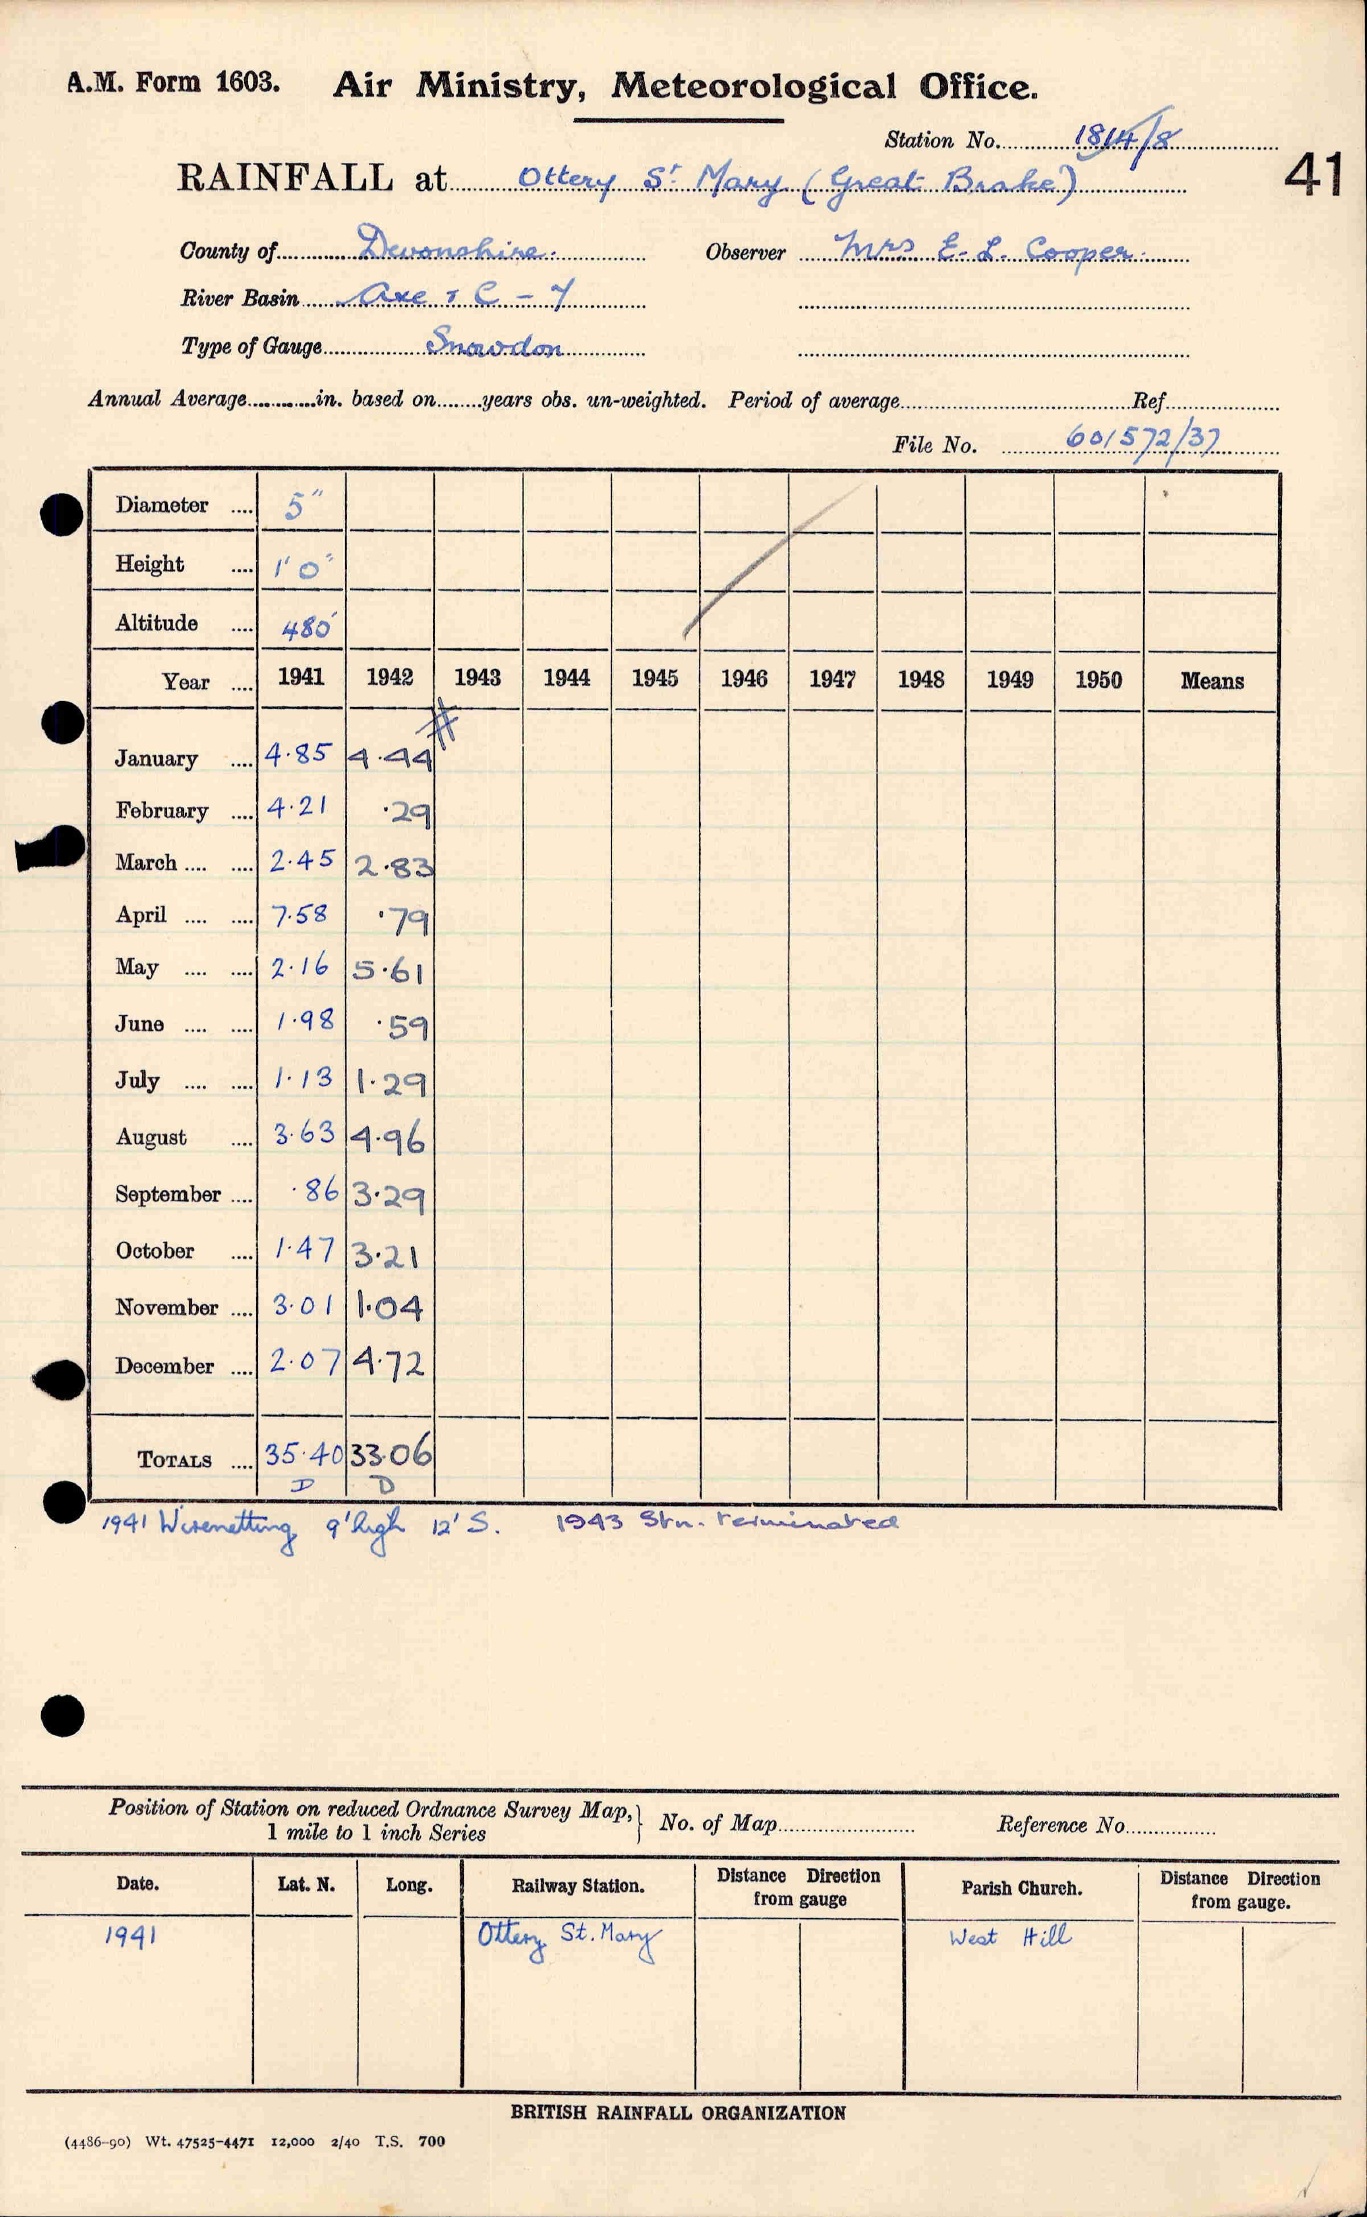 A.M. Form 1603. Air Ministry, Meteorological Office.
Station No. 1814/8
41
RAINFALL at Ottery St Mary (Great Brake)
County of Devonshire. Observer Mrs E. L. Cooper.
River Basin Axe & C - 7
Type of Gauge Snowdon
Annual Average in. based on years obs. un-weighted. Period of average Ref.
File No. 601572/37
Diameter 5"
Height 1' 0"
Altitude 480'
Year 1941 1942 1943 1944 1945 1946 1947 1948 1949 1950 Means
January 4.85 4.44
February 4.21 .29
March 2.45 2.83
April 7.58 .79
May 2.16 5.61
June 1.98 .59
July 1.13 1.29
August 3.63 4.96
September .86 3.29
October 1.47 3.21
November 3.01 1.04
December 2.07 4.72
TOTALS 35.40 33.06
D D
1941 Wirenetting 9' high 12' S. 1943 Stn. terminated
Position of Station on reduced Ordnance Survey Map, No. of Map Reference No.
1 mile to 1 inch Series
Date. Lat. N. Long. Railway Station. Distance Direction from gauge Parish Church. Distance Direction from gauge.
1941 Ottery St. Mary West Hill
BRITISH RAINFALL ORGANIZATION
(4486-90) Wt. 47525-4471 12,000 2/40 T.S. 700